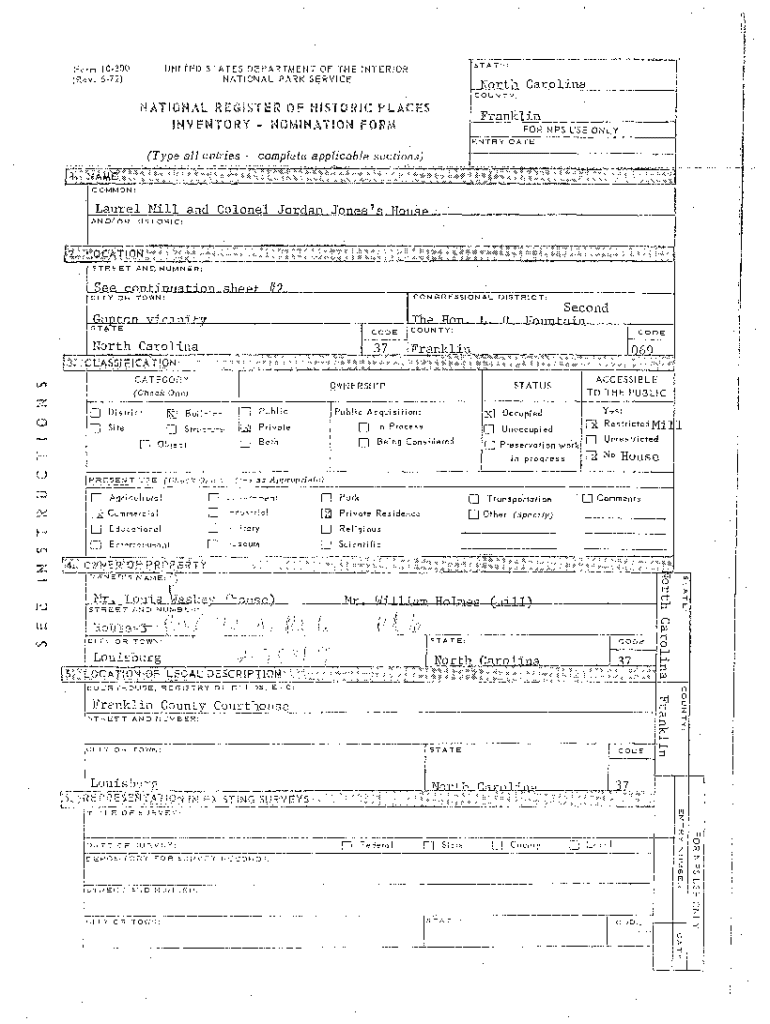 Form 10-300
(Rev. 6-72)
UNITED STATES DEPARTMENT OF THE INTERIOR
NATIONAL PARK SERVICE
NATIONAL REGISTER OF HISTORIC PLACES
INVENTORY - NOMINATION FORM
(Type all entries - complete applicable sections)
STATE:
North Carolina
COUNTY:
Franklin
FOR NPS USE ONLY
ENTRY DATE
1. NAME
COMMON:
Laurel Mill and Colonel Jordan Jones's House
AND/OR HISTORIC:
2. LOCATION
STREET AND NUMBER:
See continuation sheet #2
CITY OR TOWN:
Gupton vicinity
CONGRESSIONAL DISTRICT:
Second
The Hon. L. H. Fountain
STATE
North Carolina
CODE
37
COUNTY:
Franklin
CODE
069
3. CLASSIFICATION
CATEGORY
(Check One)
OWNERSHIP
STATUS
ACCESSIBLE
TO THE PUBLIC
District
Building
Public
Public Acquisition:
Occupied
Yes:
Site
Structure
Private
In Process
Unoccupied
Restricted Mill
Object
Both
Being Considered
Preservation work
in progress
Unrestricted
No House
PRESENT USE (Check One or More as Appropriate)
Agricultural
Government
Park
Transportation
Comments
Commercial
Industrial
Private Residence
Other (Specify)
Educational
Military
Religious
Entertainment
Museum
Scientific
SEE INSTRUCTIONS
4. OWNER OF PROPERTY
OWNER'S NAME:
Mr. Louis (House)
Mr. William Holmes (Mill)
STREET AND NUMBER:
CITY OR TOWN:
Louisburg
STATE:
North Carolina
CODE
37
5. LOCATION OF LEGAL DESCRIPTION
COURTHOUSE, REGISTRY OF DEEDS, ETC:
Franklin County Courthouse
STREET AND NUMBER:
CITY OR TOWN:
Louisburg
STATE
North Carolina
CODE
37
6. REPRESENTATION IN EXISTING SURVEYS
TITLE OF SURVEY:
DATE OF SURVEY:
Federal
State
County
Local
DEPOSITORY FOR SURVEY RECORDS:
STREET AND NUMBER:
CITY OR TOWN:
STATE:
CODE
STATE:
North Carolina
COUNTY:
Franklin
ENTRY NUMBER
DATE
FOR NPS USE ONLY